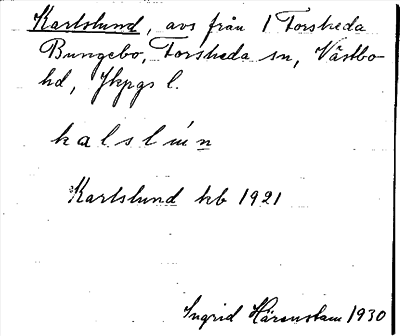 Karlslund, avs från 1 Forsheda
Bungebo, Forsheda sn, Västbo
hd, Jkpgs l.
kalslun
Karlslund kb 1921
Ingrid Härenstam 1930